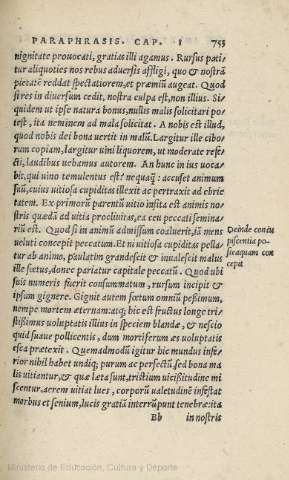 PARAPHRASIS. CAP. I 755
nignitate prouocati, gratias illi agamus. Rursus pati-
tur aliquoties nos rebus aduersis affligi, quo & nostrã
pietatẽ reddat spectatiorem, et præmiũ augeat. Quod
si res in diuersum cedit, nostra culpa est, non illius. Si-
quidem ut ipse natura bonus, nullis malis solicitari po-
test, ita neminem ad mala solicitat. A nobis est illud,
quod nobis dei bona uertit in malũ. Largitur ille cibo-
rum copiam, largitur uini liquorem, ut moderate refe-
cti, laudibus uehamus autorem. An hunc in ius uoca-
bit, qui uino temulentus est? nequaq̃: accuset animum
suũ, cuius uitiosa cupiditas illexit ac pertraxit ad ebrie
tatem. Ex primorũ parentũ uitio insita est animis no-
stris quædã ad uitia procliuitas, ea ceu peccati semina-
riũ est. Quod si in animũ admissum coaluerit, iã mens
ueluti concepit peccatum. Et ni uitiosa cupiditas pella-
tur ab animo, paulatim grandescit & inualescit malus
ille fœtus, donec pariatur capitale peccatũ. Quod ubi
suis numeris fuerit consummatum, rursum incipit &
ipsum gignere. Gignit autem fœtum omniũ pessimum,
nempe mortem æternam: atq; hic est fructus longe tri-
stissimus uoluptatis illius in speciem blandæ, & nescio
quid suaue pollicentis, dum mortiferum æs uoluptatis
esca prætexit. Quemadmodũ igitur hic mundus infe-
rior nihil habet undiq; purum ac perfectũ, sed bona ma
lis uitiantur, & quæ læta sunt, tristium uicissitudine mi
scentur. aerem uitiat lues, corporũ ualetudinẽ infestat
morbus et senium, lucis gratiã interrũpunt tenebræ: ita
Bb in nostris
Deinde concu
piscentia po-
stea quam con
cepit
Ministerio de Educación, Cultura y Deporte